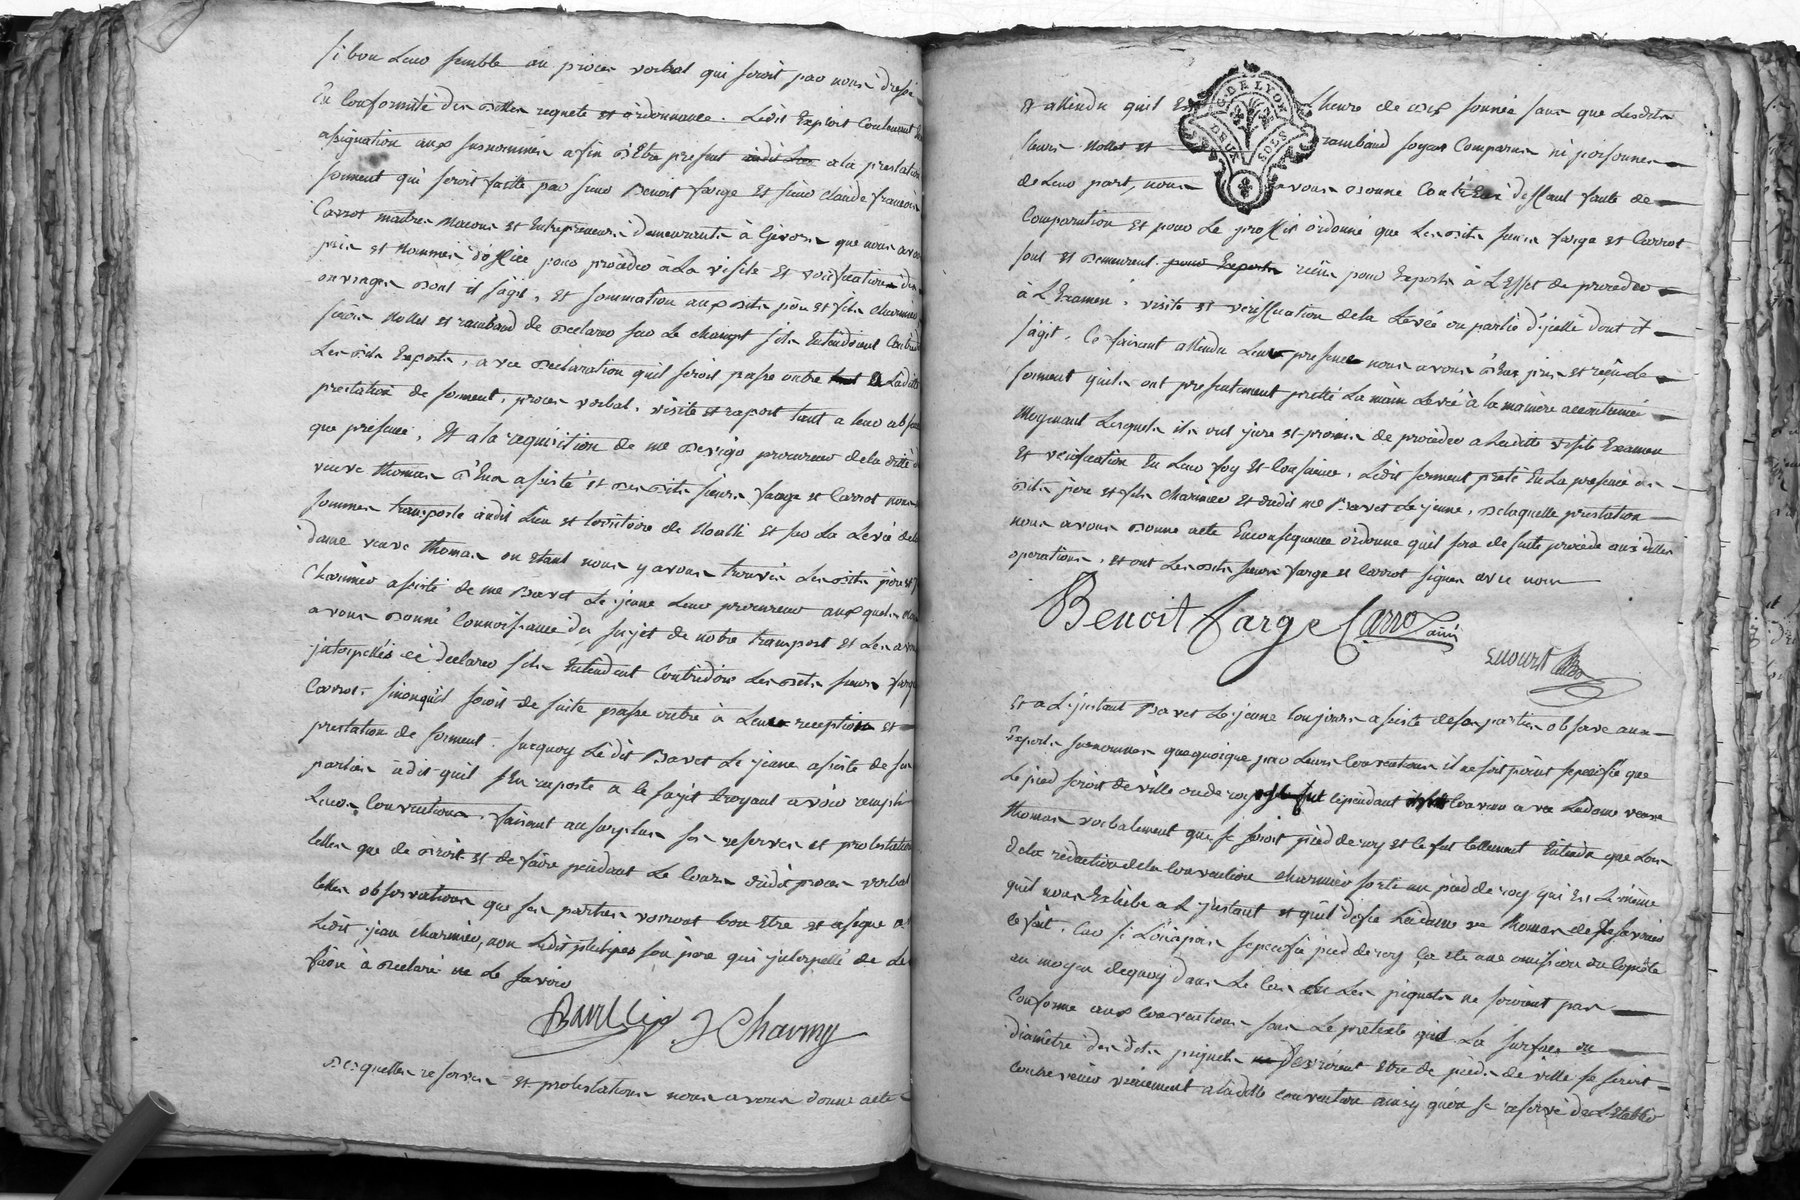 si bon leur semble au proces verbal qui seroit par nous dressé
En conformité des dittes requete et ordonnance. Ledit Exploit contenant
assignation aux susnommés afin d'Etre present a la prestation
serment qui seroit faitte par sieur Benoit farge Et sieur claude francois
Carrot maitres Macons et Entrepreneurs demeurants à Givors que nous avons
pris et Nommés d'office pour proceder à La visite Et veriffication des
ouvrages dont il s'agit, Et sommation aux dits pere et fils charmier
sieurs Nolles et rambaud de declarer sur Le champt s'ils Entendoient Contredire
Lesdits Experts, avec declaration qu'il seroit passé outre a Ladite
prestation de serment, proces verbal, visite et raport tant a leur absence
que presence, Et a la requisition de me procureur de la ditte
veuve thomas d'Elle assisté et desdits sieurs farge et Carrot nous
sommes transporté audit Lieu et territoire de et sur La Levée de la
dame veuve thomas ou etant nous y avons trouvés Lesdits pere et
Charmier assisté de me Bavet Le jeune Leur procureur auxquels nous
avons donné Connoissance du sujet de notre transport et Les avons
jnterpellés de declarer s'ils Entendent Contredire Lesdits sieurs farge
Carrot, sinon qu'il seroit de suite passé outre à Leur reception et
prestation de serment. surquoy Ledit Bavet Le jeune assisté de ses
parties a dit qu'il s'En raporte a le sujet Croyant avoir rempli
Leurs Conventions, faisant au surplus ses reserves et protestations
telles que de droit et de faire pendant Le Cours dudit proces verbal
telles observations que ses parties verront bon Etre et a signé avec
Ledit jean charmier, non Ledit son pere qui jnterpellé de Le
faire a declaré ne Le savoir
J Charmy
Desquelles reserves et protestations nous avons donné acte
Et attendu qu'il Est Lheure de sonnée sans que Lesdits
sieurs Nolles et rambaud soyent Comparus ni personnes
de Leur part, nous avons donné Contr'Eux deffaut faute de
Comparution et pour Le proffit ordonné que Lesdits sieurs farge et Carrot
sont et demeurent reçus pour Experts à L'Effet de proceder
à L'Examen, visite et veriffication de la Levée ou partie d'jcelle dont il
s'agit. Ce faisant attendu Leur presence nous avons d'Eux pris et reçu Le
serment qu'ils ont presentement pretté La main Levée à la maniere accoutumée
Moyenant Lesquels ils ont juré et promis de proceder a laditte visite Examen
Et veriffication En Leur foy Et Conscience. Ledit serment preté En La presence des
dits pere et fils Charmier et dudit me Bavet Le jeune, delaquelle prestation
nous avons donné acte Enconsequence ordonné qu'il sera de suite procédé aux dittes
operations, et ont Lesdits sieurs farge et Carrot signés avec nous
Benoit farge Carro
Et a L'jnstant Bavet Le jeune toujours assisté de ses parties observe aux
Experts susnommés que quoique par Leurs Conventions il ne soit point specifié que
Le pied seroit de ville ou de roy cependant convenu avec Ladame veuve
thomas verbalement que se seroit pied de roy et le fut tellement Entendu que Lors
de la redaction de la Convention charmier sortit un pied de roy qui Est Le même
qu'il nous Exhibe a L'jnstant et qu'il deffie Ladame ve thomas de desavouer
ce fait. Car si L'on n'a pas specifié pied de roy, ça été une omission
au moyen dequoy dans Le Cas ou Les piquets ne seroient pas
Conforme aux Conventions sous Le pretexte que La surface ou
diamêtre des dits piquets devroient Etre de pieds de ville se seroit
contrevenir vraiement a ladite convention ainsy qu'on se reserve de L'Etablir